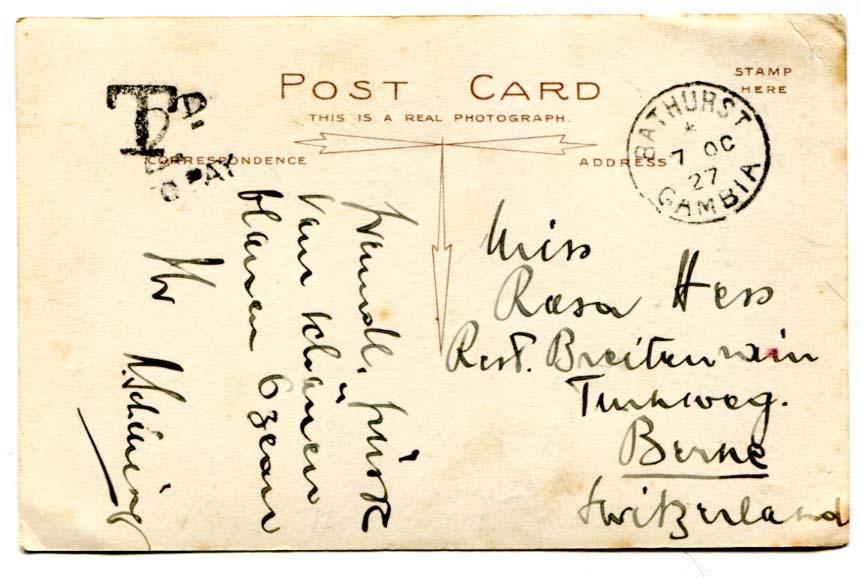 POST CARD
THIS IS A REAL PHOTOGRAPH.
STAMP
HERE
CORRESPONDENCE
ADDRESS
T
BATHURST
7 OC
27
GAMBIA
freundl. Grüsse
vom schönen
blauen Ozean
Ihr
Miss
Rosa Hess
Rest. Breitenrain
Turnweg.
Berne
Switzerland